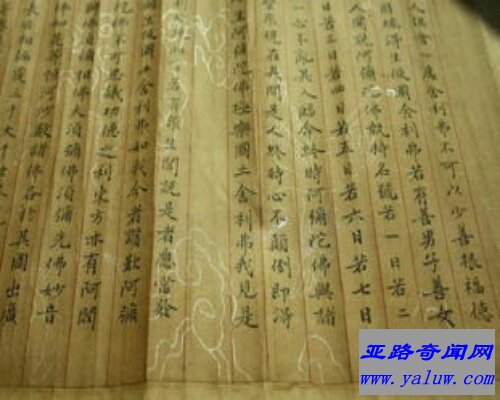 人俱會一處舍利弗不可以少善根福德
因緣得生彼國舍利弗若有善男子善女
人聞說阿彌陀佛執持名號若一日若二
日若三日若四日若五日若六日若七日
一心不亂其人臨命終時阿彌陀佛與諸
聖衆現在其前是人終時心不顛倒即得
生阿彌陀佛極樂國土舍利弗我見是
言若有衆生聞說是者應當發
生彼國土舍利弗如我今者讚歎阿彌
陀佛不可思議功德之利東方亦有阿閦
須彌相佛大須彌佛須彌光佛妙音
佛如是等恒河沙數諸佛各於其國出廣
長舌相徧覆三千大千世
亚路奇闻网
www.yaluw.com